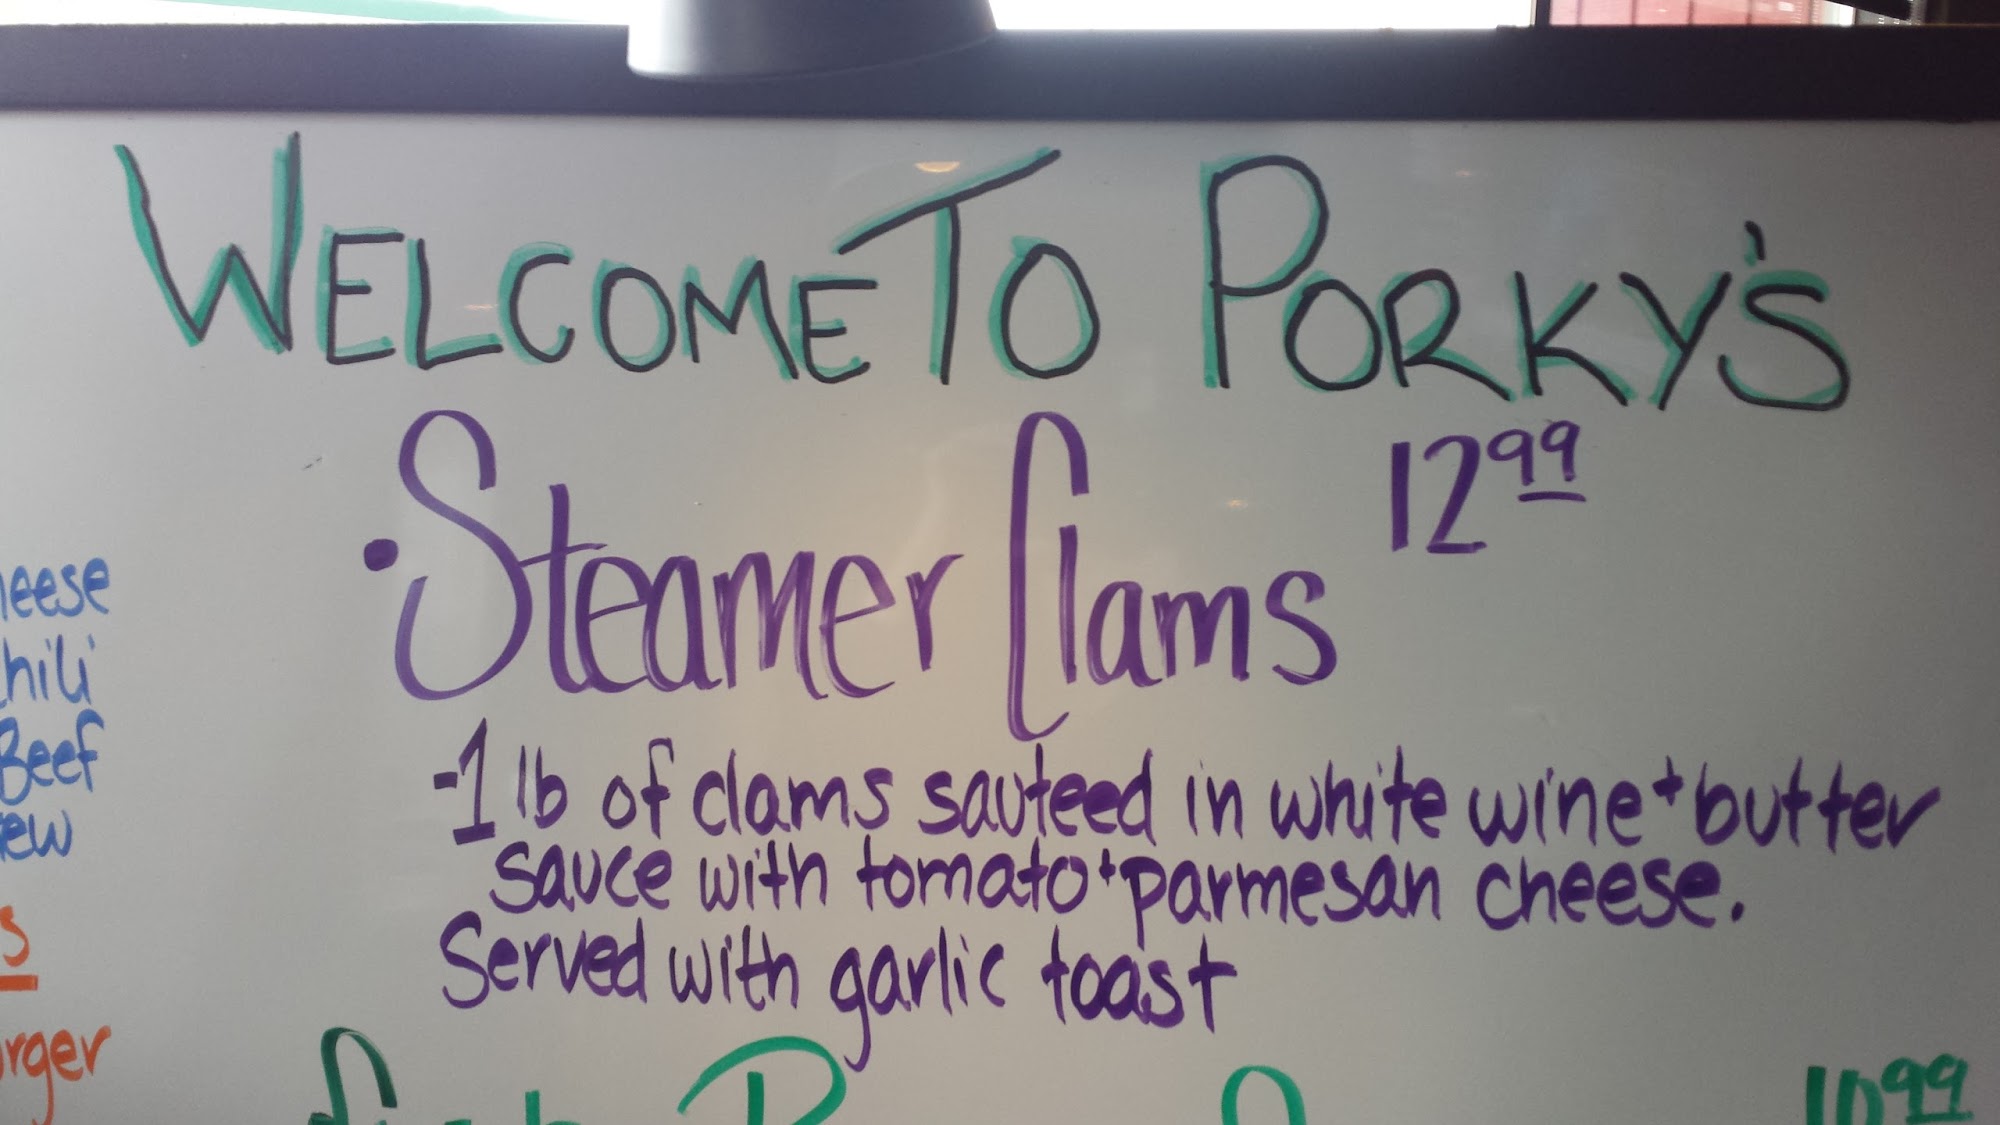 WELCOME TO PORKY'S
• Steamer Clams 12 99
-1 lb of clams sauteed in white wine + butter
sauce with tomato + parmesan cheese.
Served with garlic toast
10 99
Beef